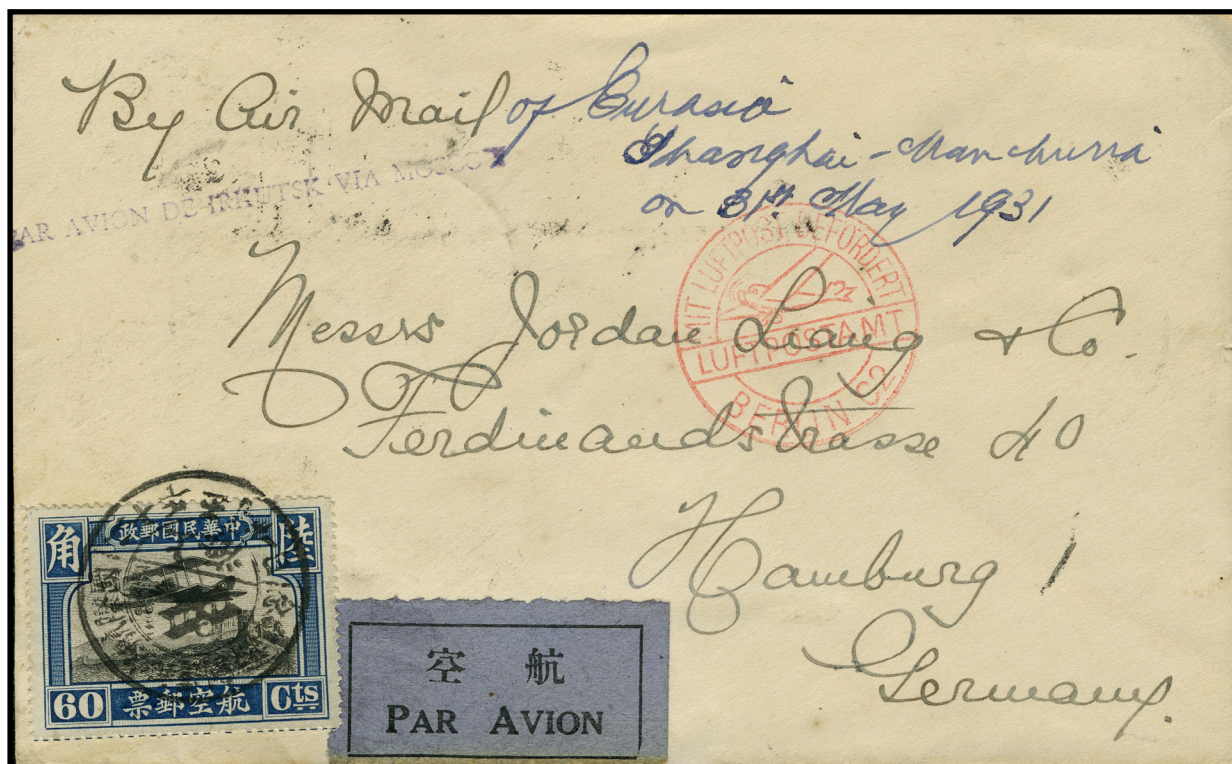 By Air Mail of Eurasia
Shanghai-Manchuria
on 31st May 1931
PAR AVION DE IRKUTSK VIA MOSCOU
MIT LUFTPOST BEFÖRDERT
LUFTPOSTAMT
BERLIN C2
Messrs Jordan Liang & Co.
Ferdinandstrasse 40
Hamburg 1
Germany.
角 政郵國民華中 陸
60 票郵空航 Cts
空 航
PAR AVION